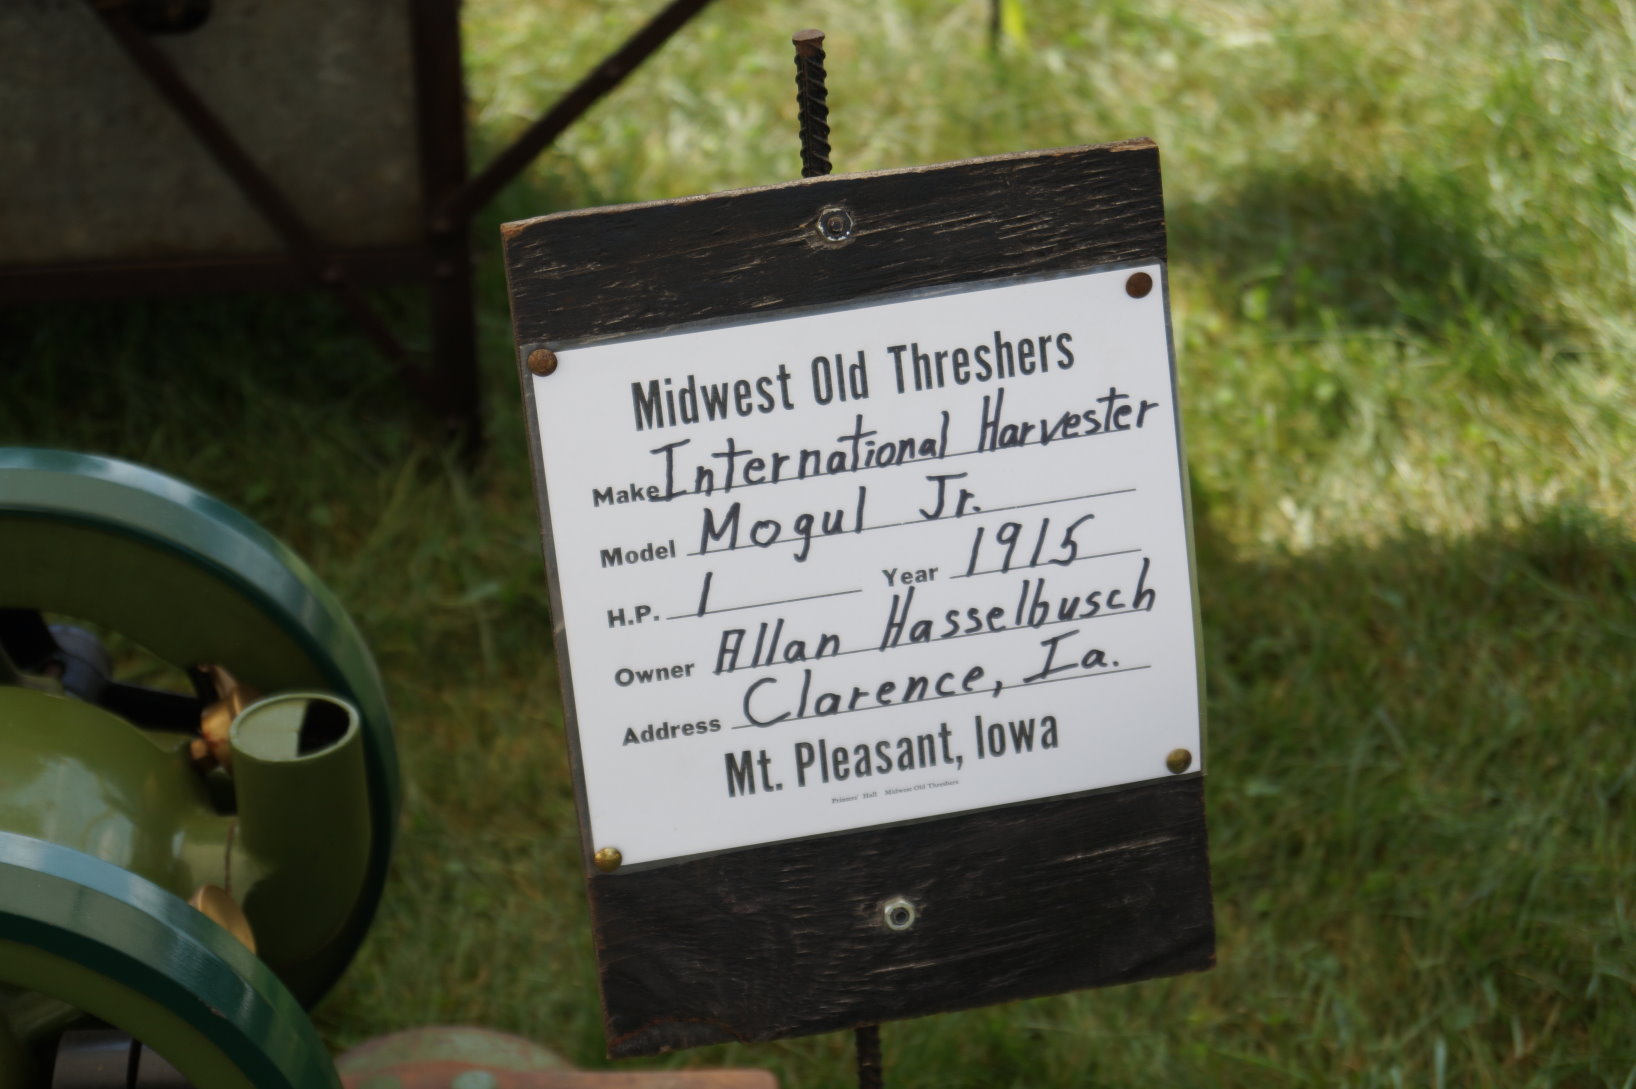 Midwest Old Threshers
Make International Harvester
Model Mogul Jr.
H.P. 1 Year 1915
Owner Allan Hasselbusch
Address Clarence, Ia.
Mt. Pleasant, Iowa
Printers' Hall Midwest Old Threshers